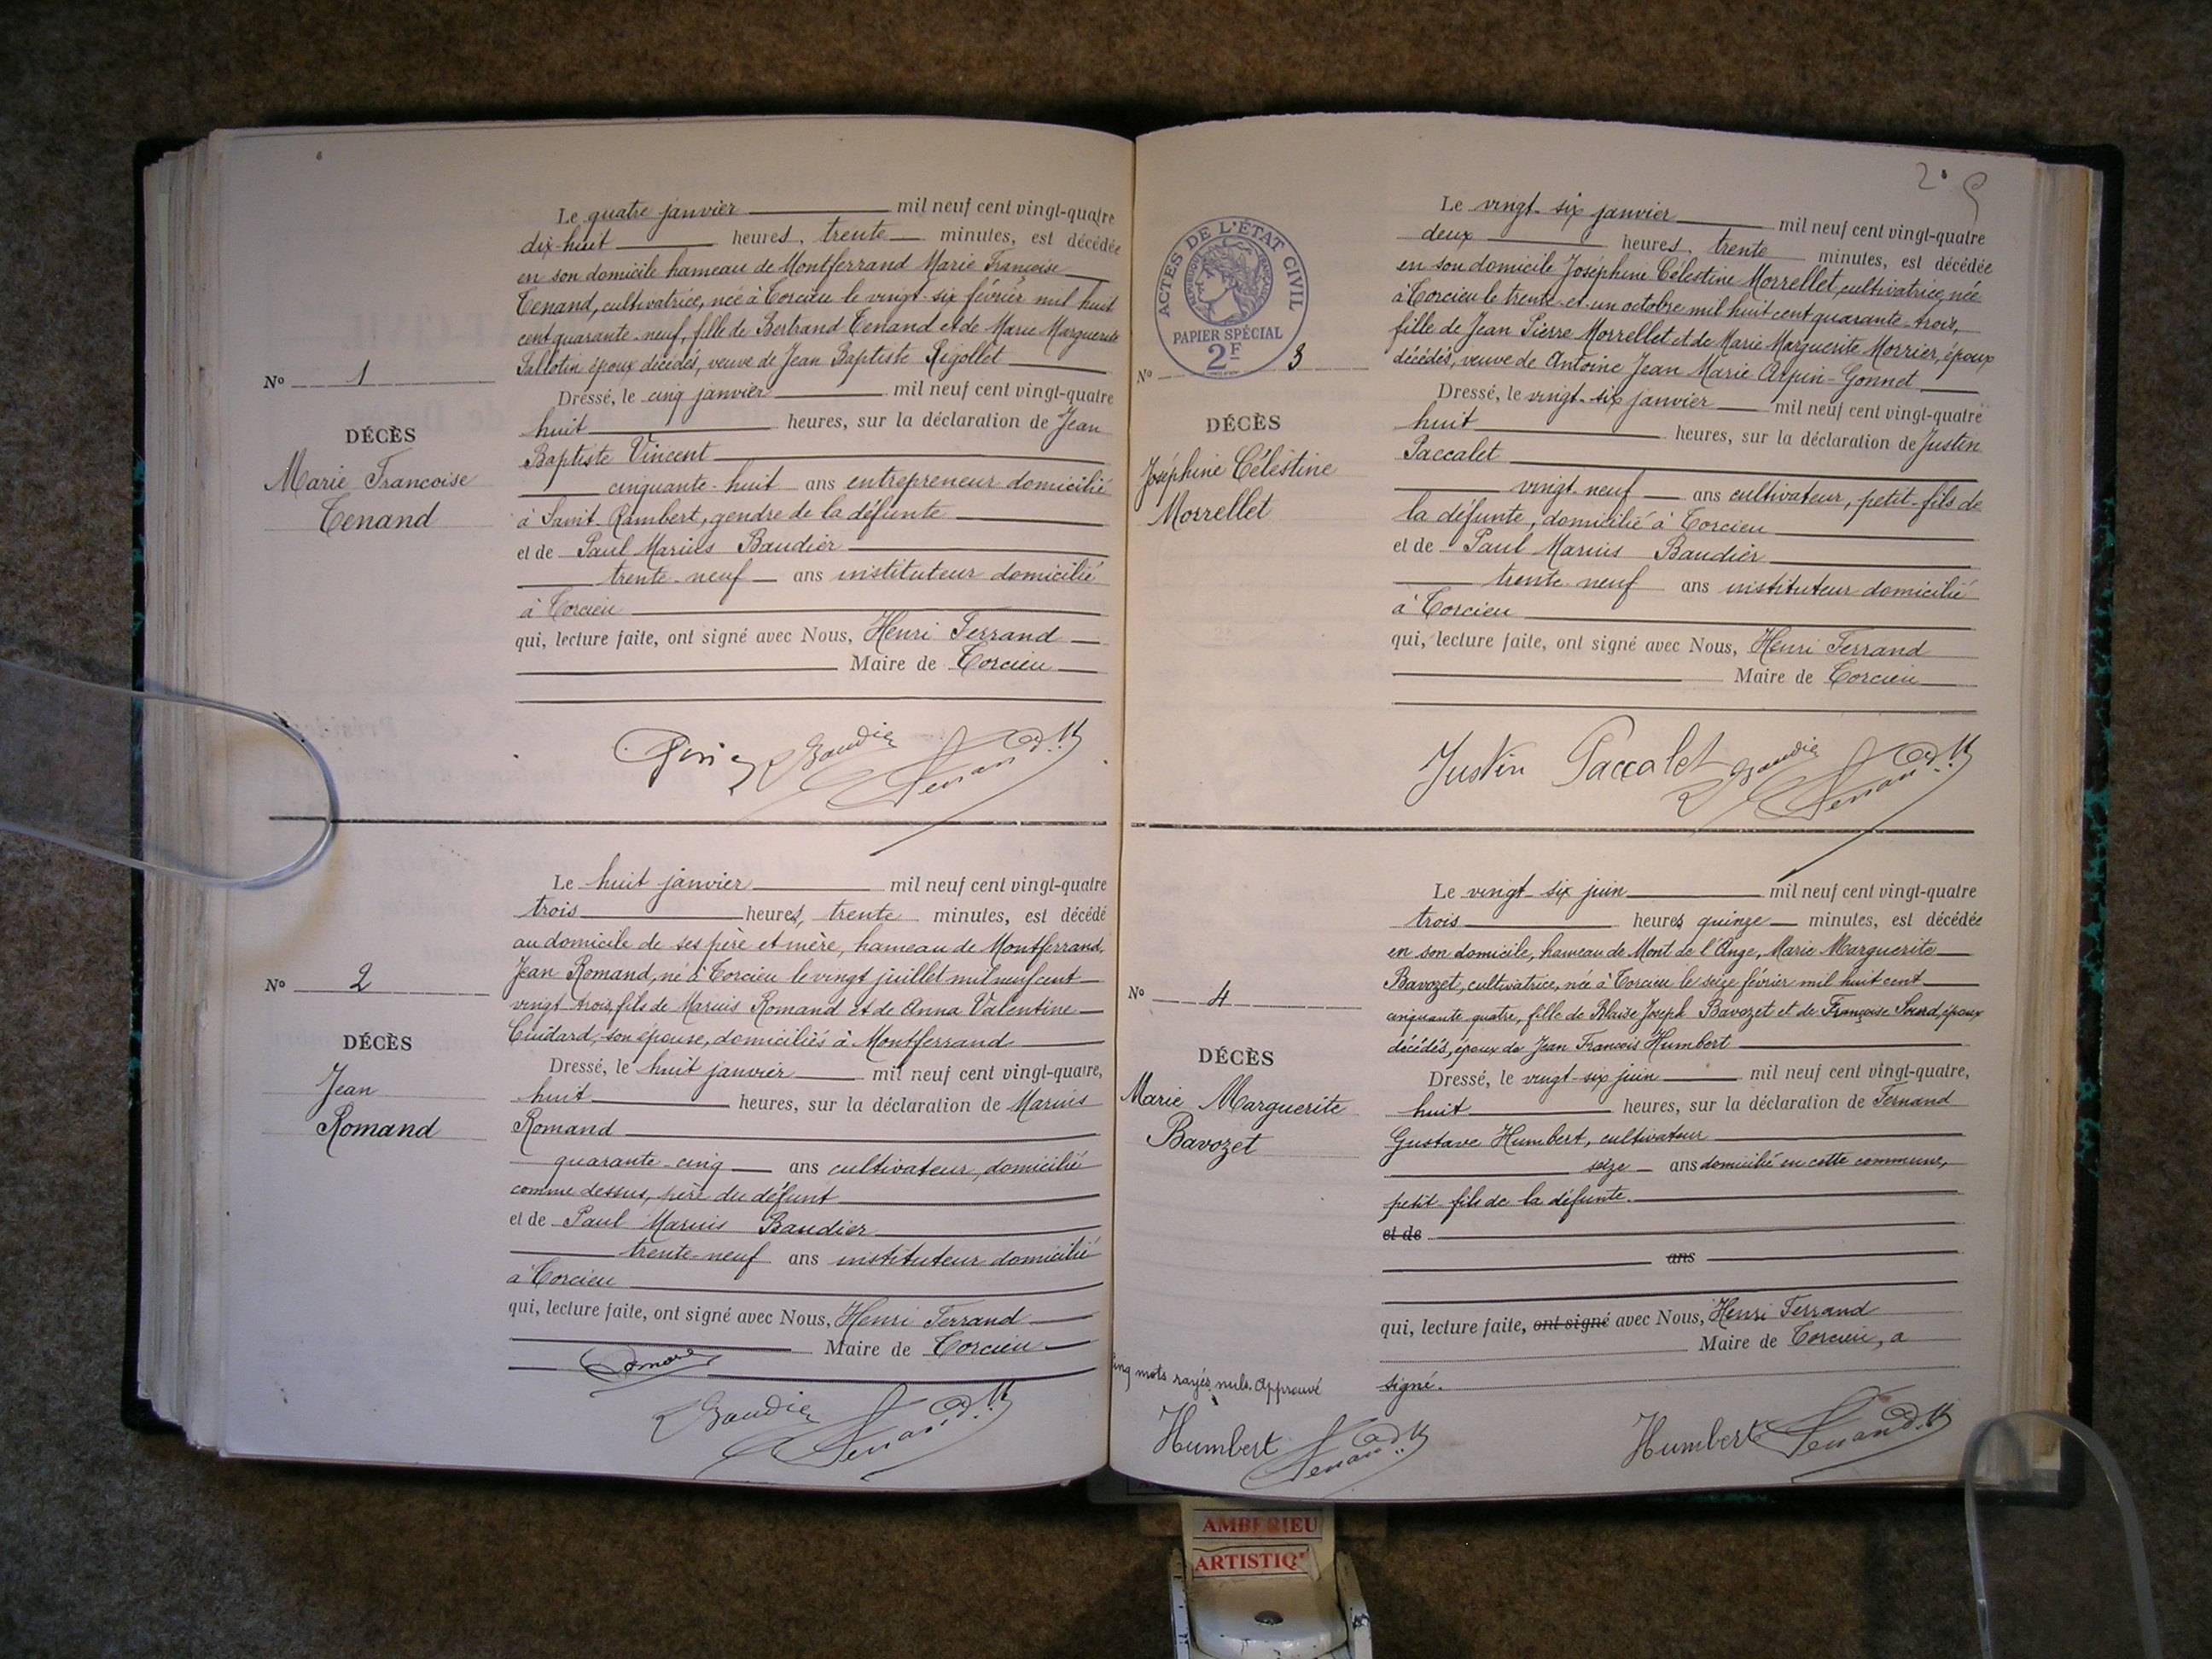 Le quatre janvier mil neuf cent vingt-quatre
dix-huit heures, trente minutes, est décédée
en son domicile hameau de Montferrand Marie Françoise
Tenand, cultivatrice, née à Torcieu le vingt-six février mil huit
cent quarante-neuf, fille de Bertrand Tenand et de Marie Marguerite
Pallotin époux décédés, veuve de Jean Baptiste Rigollet
Nº 1
Dressé, le cinq janvier mil neuf cent vingt-quatre
huit heures, sur la déclaration de Jean
DÉCÈS
Baptiste Vincent
Marie Françoise
cinquante-huit ans entrepreneur domicilié
Tenand
à Saint-Rambert, gendre de la défunte
et de Paul Marius Baudier
trente-neuf ans instituteur domicilié
à Torcieu
qui, lecture faite, ont signé avec Nous, Henri Ferrand
Maire de Torcieu
Baudier Ferrand
Le huit janvier mil neuf cent vingt-quatre
trois heures, trente minutes, est décédé
au domicile de ses père et mère, hameau de Montferrand,
Jean Romand, né à Torcieu le vingt juillet mil neuf cent
Nº 2
vingt-trois, fils de Marius Romand et de Anna Valentine
Cuidard, son épouse, domiciliés à Montferrand
DÉCÈS
Dressé, le huit janvier mil neuf cent vingt-quatre,
Jean
huit heures, sur la déclaration de Marius
Romand
Romand
quarante-cinq ans cultivateur, domicilié
comme dessus, père du défunt
et de Paul Marius Baudier
trente-neuf ans instituteur domicilié
à Torcieu
qui, lecture faite, ont signé avec Nous, Henri Ferrand
Maire de Torcieu
Romand
Baudier Ferrand
2
ACTES DE L'ÉTAT CIVIL
RÉPUBLIQUE FRANÇAISE
PAPIER SPÉCIAL
2F
Le vingt-six janvier mil neuf cent vingt-quatre
deux heures, trente minutes, est décédée
en son domicile Joséphine Célestine Morrellet, cultivatrice, née
à Torcieu le trente-et-un octobre mil huit cent quarante-trois,
fille de Jean Pierre Morrellet et de Marie Marguerite Morrier, époux
décédés, veuve de Antoine Jean Marie Arpin-Gonnet
Nº 3
Dressé, le vingt-six janvier mil neuf cent vingt-quatre
DÉCÈS
huit heures, sur la déclaration de Justin
Joséphine Célestine
Paccalet
Morrellet
vingt-neuf ans cultivateur, petit-fils de
la défunte, domicilié à Torcieu
et de Paul Marius Baudier
trente-neuf ans instituteur domicilié
à Torcieu
qui, lecture faite, ont signé avec Nous, Henri Ferrand
Maire de Torcieu
Justin Paccalet Baudier Ferrand
Le vingt-six juin mil neuf cent vingt-quatre
trois heures quinze minutes, est décédée
en son domicile, hameau de Mont de l'Ange, Marie Marguerite
Bavozet, cultivatrice, née à Torcieu le seize février mil huit cent
Nº 4
cinquante quatre, fille de Blaise Joseph Bavozet et de Françoise Sourd, époux
décédés, époux de Jean François Humbert
DÉCÈS
Dressé, le vingt-six juin mil neuf cent vingt-quatre,
Marie Marguerite
huit heures, sur la déclaration de Fernand
Bavozet
Gustave Humbert, cultivateur
seize ans domicilié en cette commune,
petit-fils de la défunte.
et de
ans
qui, lecture faite, ont signé avec Nous, Henri Ferrand
Maire de Torcieu, a
signé.
Cinq mots rayés nuls. Approuvé
Humbert Ferrand
Humbert Ferrand
AMBERIEU
ARTISTIQ